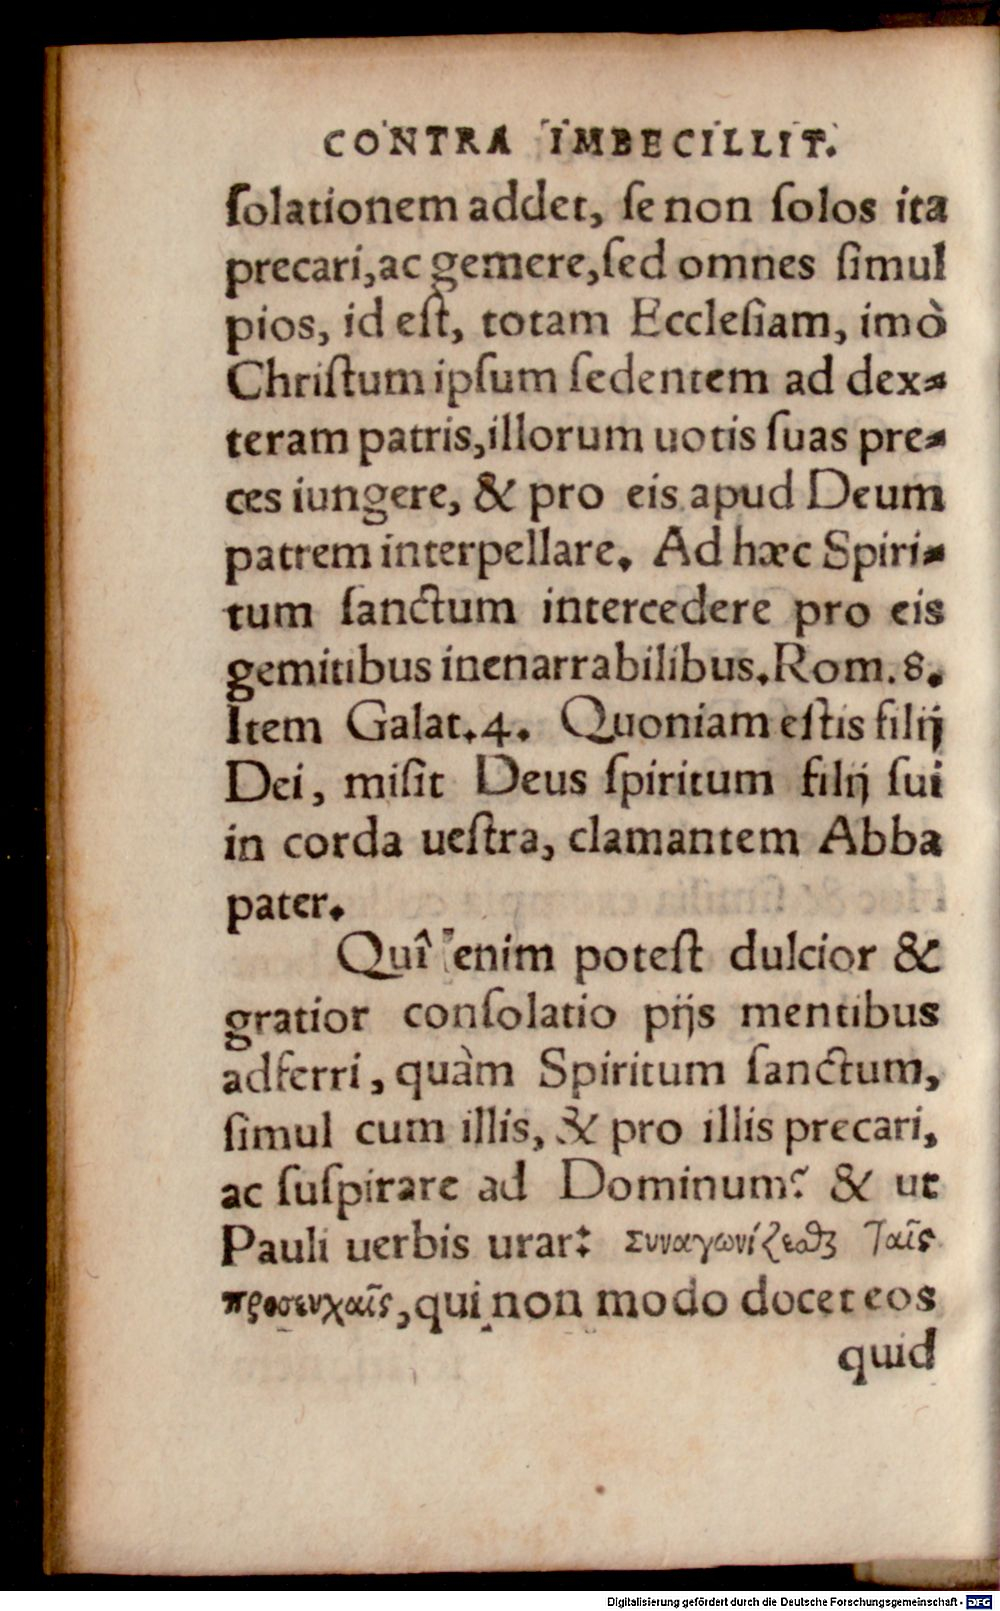 CONTRA IMBECILLIT.
ſolationem addet, ſe non ſolos ita
precari, ac gemere, ſed omnes ſimul
pios, id eſt, totam Eccleſiam, imò
Chriſtum ipſum ſedentem ad dex⸗
teram patris, illorum uotis ſuas pre⸗
ces iungere, & pro eis apud Deum
patrem interpellare. Ad hæc Spiri⸗
tum ſanctum intercedere pro eis
gemitibus inenarrabilibus. Rom. 8.
Item Galat. 4. Quoniam eſtis filij
Dei, miſit Deus ſpiritum filij ſui
in corda ueſtra, clamantem Abba
pater.
Quî enim poteſt dulcior &
gratior conſolatio pijs mentibus
adferri, quàm Spiritum ſanctum,
ſimul cum illis, & pro illis precari,
ac ſuſpirare ad Dominum? & ut
Pauli uerbis utar: συναγωνίζεσθαι ταῖς
προσευχαῖς, qui non modo docet eos
quid
Digitalisierung gefördert durch die Deutsche Forschungsgemeinschaft - DFG